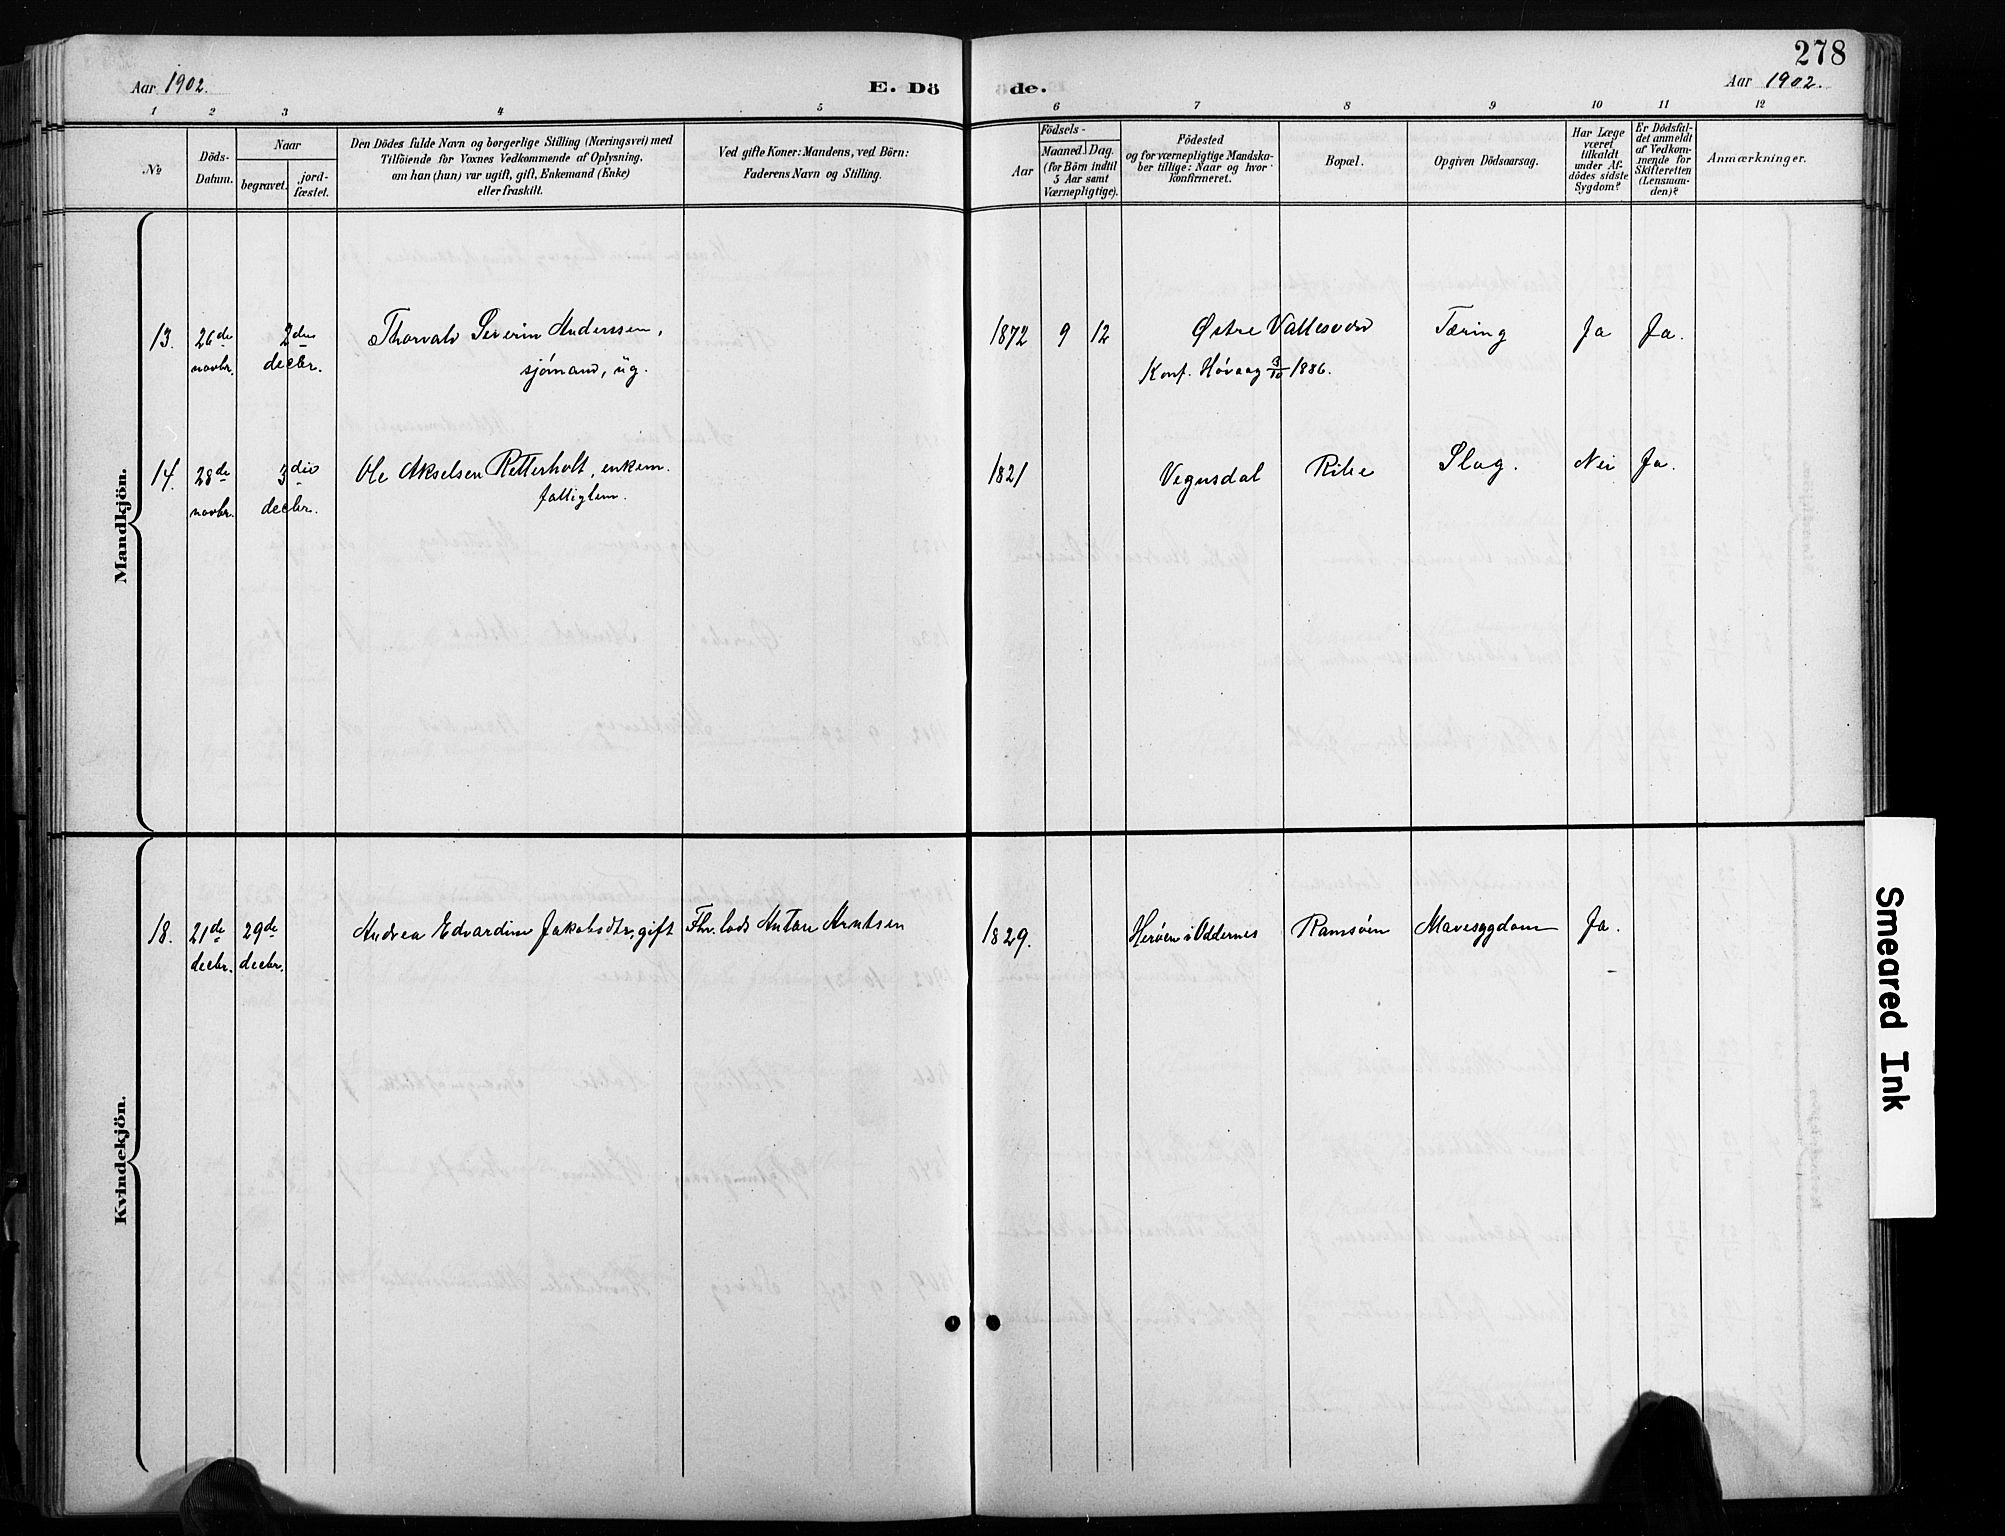 278
Aar 1902.
E. Dö
de.
Aar 1902.
1 2 3 4 5 6 7 8 9 10 11 12
No
Döds-
Datum.
Naar
begravet.
jord-
fæstet.
Den Dödes fulde Navn og borgerlige Stilling (Næringsvei) med
Tilföiende for Voxnes Vedkommende af Oplysning,
om han (hun) var ugift, gift, Enkemand (Enke)
eller fraskilt.
Ved gifte Koner: Mandens, ved Börn:
Faderens Navn og Stilling.
Födsels-
Aar
Maaned. Dag.
(for Börn indtil
5 Aar samt
Værnepligtige).
Födested
og for værnepligtige Mandska-
ber tillige: Naar og hvor
konfirmeret.
Bopæl.
Opgiven Dödsaarsag.
Har Læge
været
tilkaldt
under Af-
dödes sidste
Sygdom?
Er Dödsfal-
det anmeldt
af Vedkom-
mende for
Skifteretten
(Lensman-
den)?
Anmærkninger.
Mandkjön.
13. 26de 2den Thorvald Severin Anderssen, 1872 9 12 Østre Vallesverd Tæring Ja Ja.
novbr. decbr. sjømand, ug. Konf. Høvaag 3/10 1886.
14. 28de 3die Ole Akselsen Retterholt, enkem. 1821 Vegusdal Ribe Slag. Nei Ja.
novbr. decbr. fattiglem.
Kvindekjön.
18. 21de 29de Andrea Edvardine Jakobsdtr, gift Fhv. lods Anton Arntsen 1829. Herøen i Oddernes Ramsøen Mavesygdom Ja.
decbr. decbr.
Smeared Ink